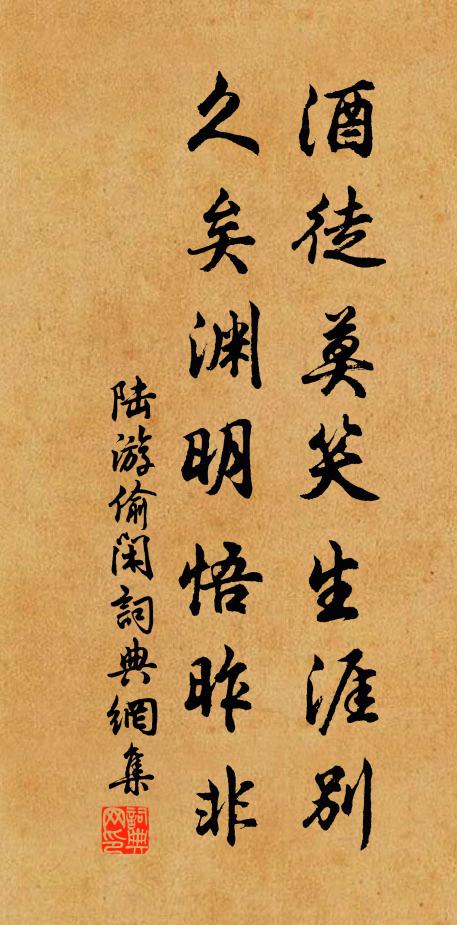 酒徒莫笑生涯别
久矣渊明悟昨非
陆游偷闲詞典網集
詞典网印